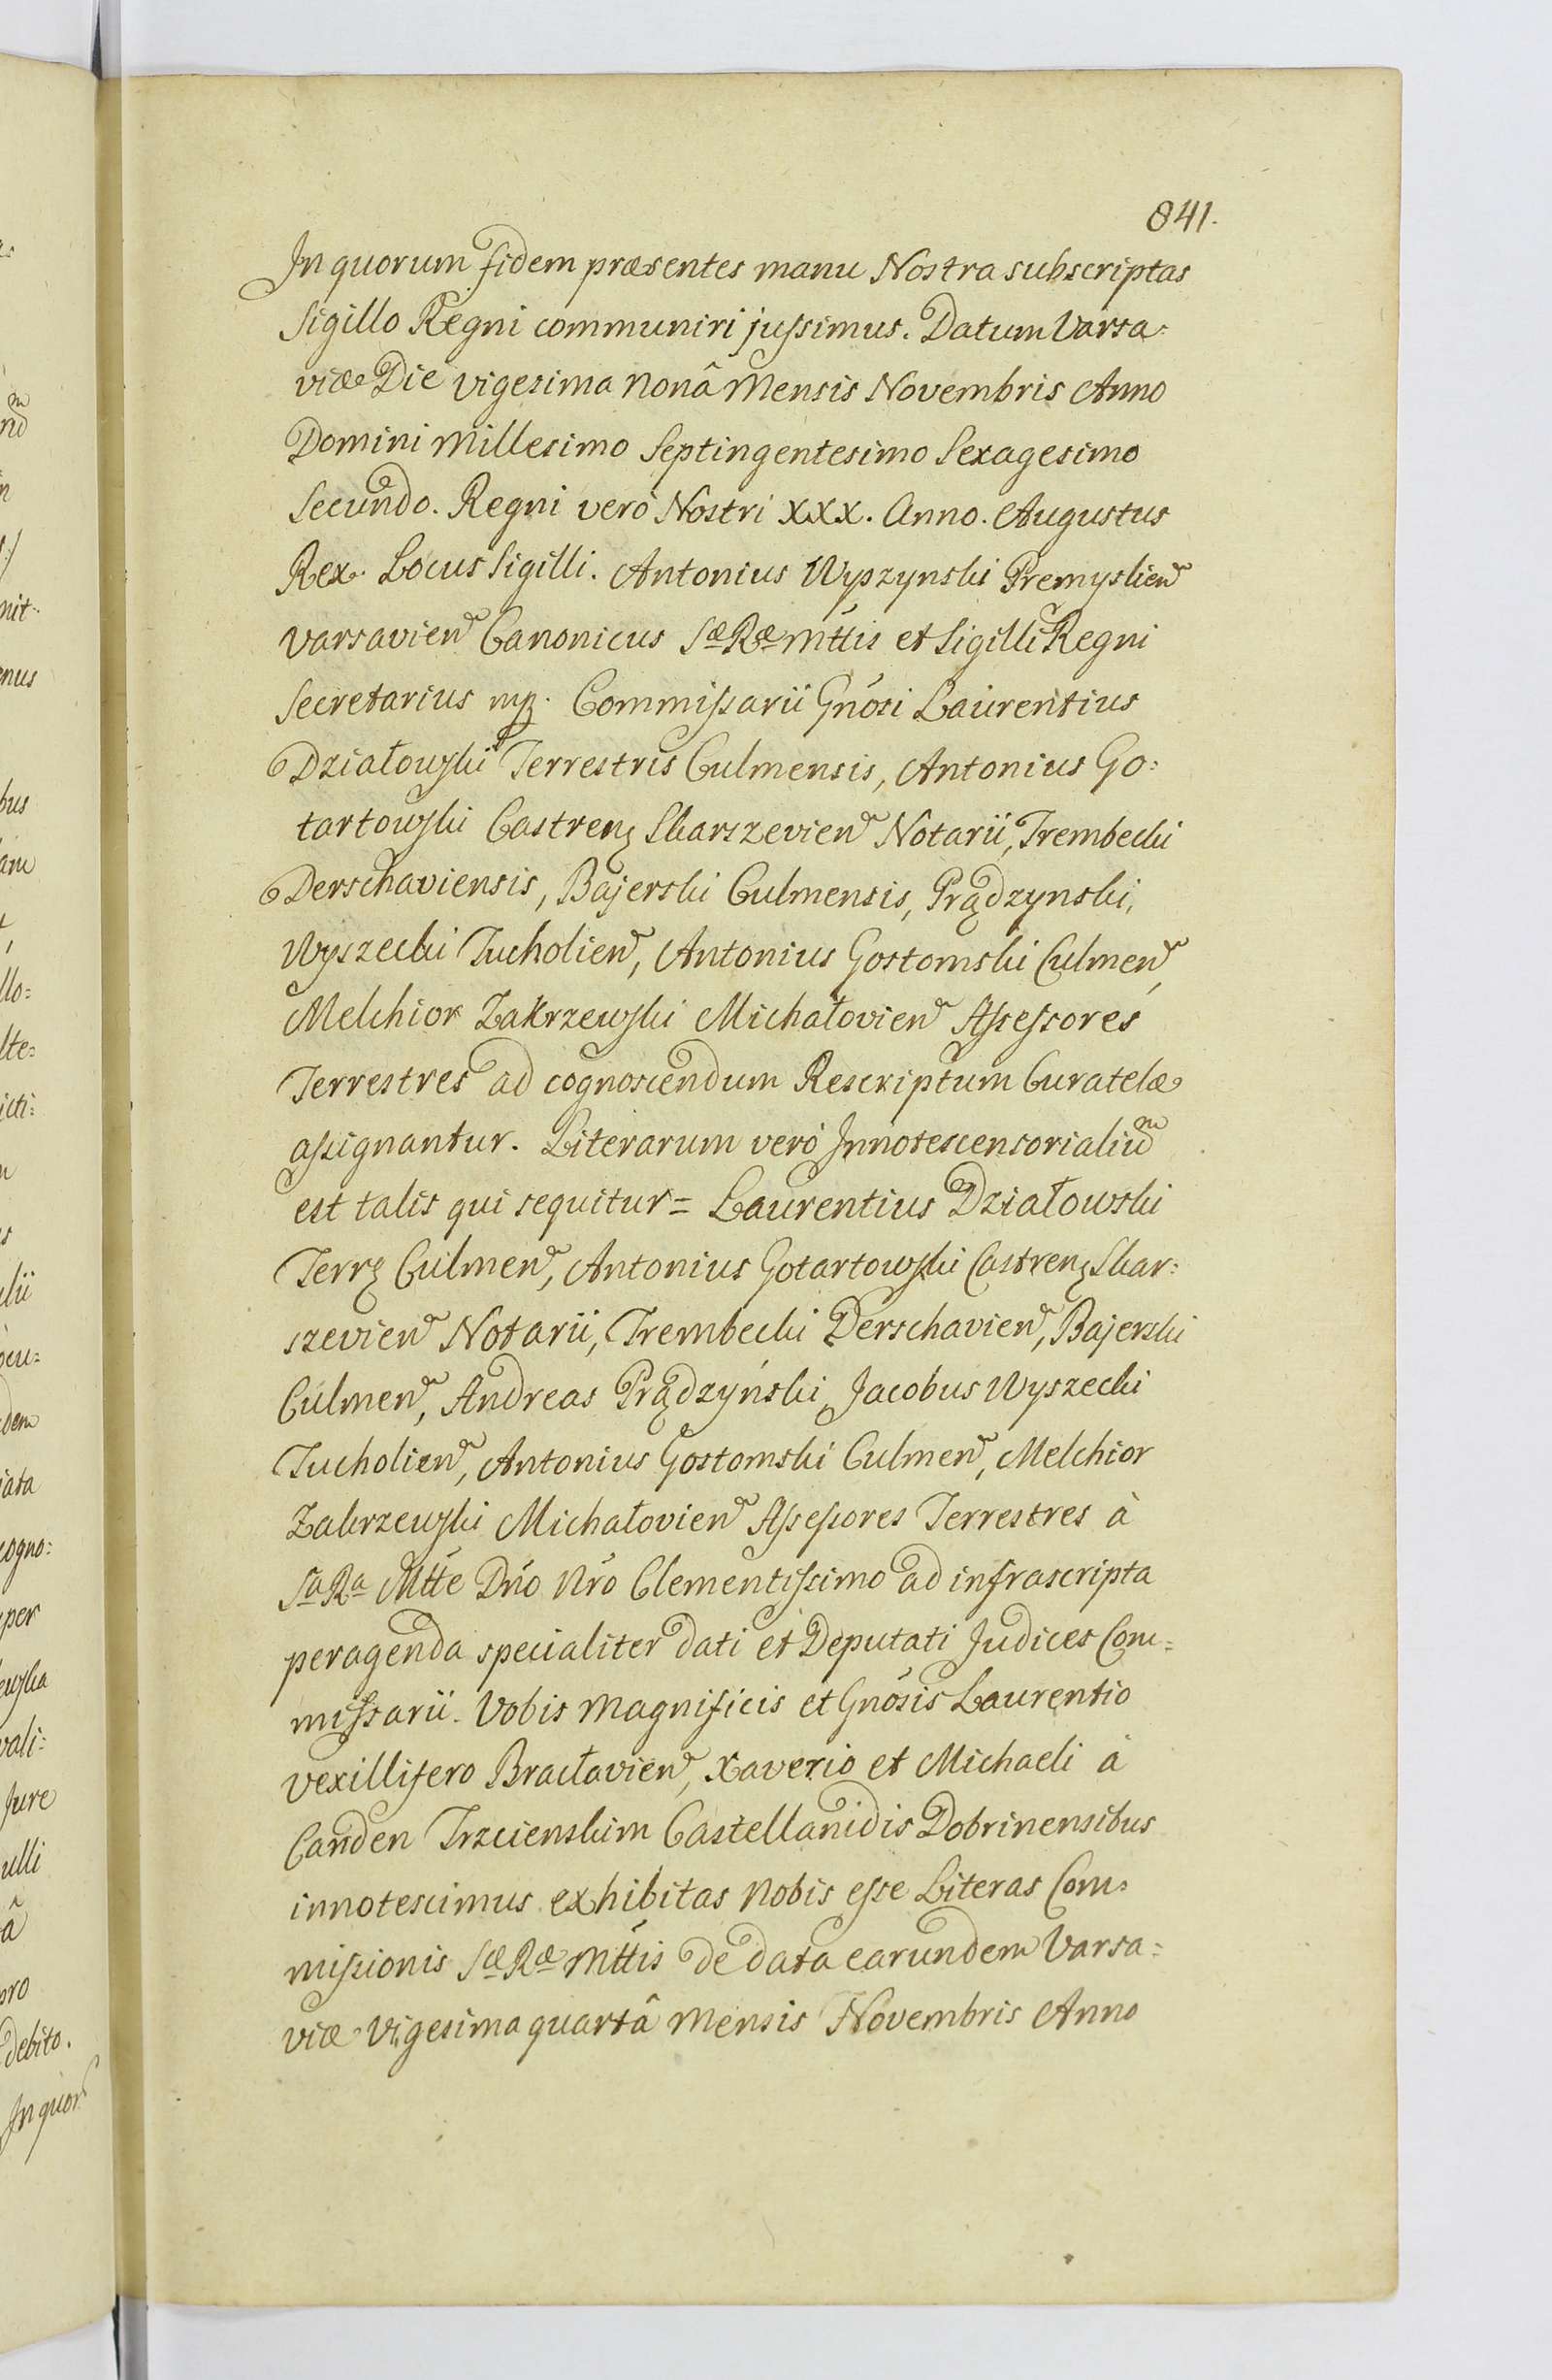 841.
In quorum fidem præsentes manu Nostra subscriptas
Sigillo Regni communiri jussimus. Datum Varsa=
viæ Die vigesima nonâ Mensis Novembris Anno
Domini Millesimo Septingentesimo Sexagesimo
Secundo. Regni verò Nostri XXX. Anno. Augustus
Rex. Locus Sigilli. Antonius Wyszynski Premyslien
Varsavien Canonicus Sæ Ræ Mttis et Sigilli Regni
Secretarius mp. Commissarii Gnósi Laurentius
Działowski Terrestris Culmensis, Antonius Go=
tartowski Castren Skarszevien Notarii, Trembecki
Derschaviensis, Bajerski Culmensis, Prądzynski,
Wyszecki Tucholien, Antonius Gostomski Culmen,
Melchior Zakrzewski Michałovien Assessores
Terrestres ad cognoscendum Rescriptum Curatelæ
assignantur. Literarum verò Innotescensorialiũ
est talis qui sequitur = Laurentius Działowski
Terr Culmen, Antonius Gotartowski Castren Skar=
szevien Notarii, Trembecki Derschavien, Bajerski
Culmen, Andreas Prądzyński, Jacobus Wyszecki
Tucholien, Antonius Gostomski Culmen, Melchior
Zakrzewski Michałovien Assessores Terrestres à
Sa Ra Mtte Dńo Nró Clementissimo ad infrascripta
peragenda specialiter dati et Deputati Judices Com=
missarii. Vobis Magnificis et Gnósis Laurentio
Vexillifero Bracłavien, Xaverio et Michaeli à
Canden Trzcienskim Castellanidis Dobrinensibus
innotescimus exhibitas Nobis esse Literas Com=
missionis Sæ Ræ Mttis de data earundem Varsa=
viæ Vigesima quartâ Mensis Novembris Anno